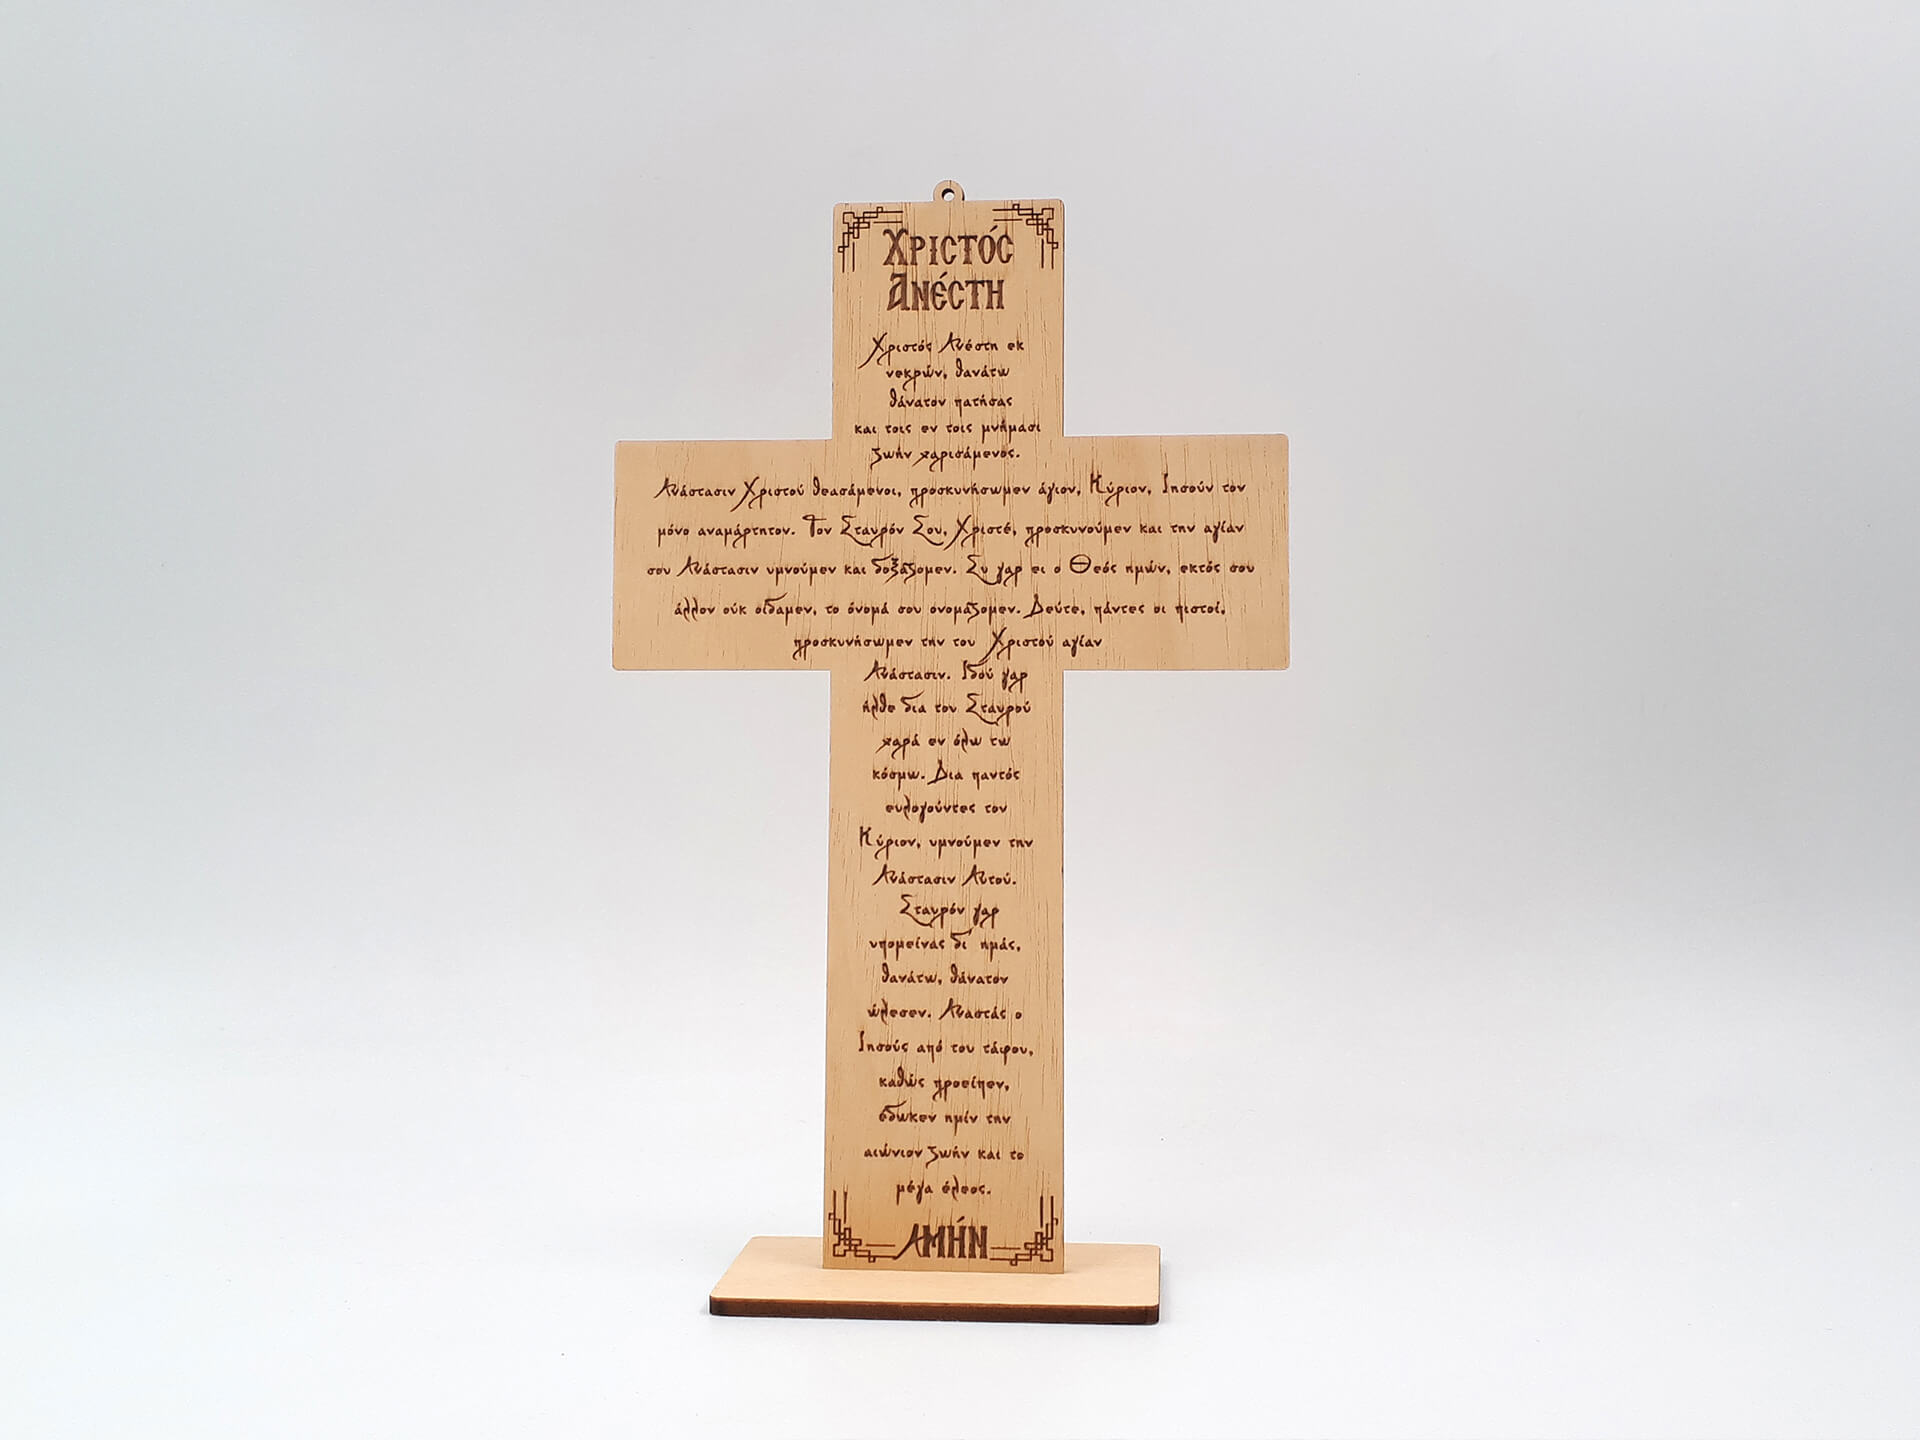 Χριστός
Ανέστη
Χριστός Ανέστη εκ
νεκρών, θανάτω
θάνατον πατήσας
και τοις εν τοις μνήμασι
ζωήν χαρισάμενος.
Ανάστασιν Χριστού θεασάμενοι, προσκυνήσωμεν άγιον, Κύριον, Ιησούν τον
μόνο αναμάρτητον. Τον Σταυρόν Σου, Χριστέ, προσκυνούμεν και την αγίαν
σου Ανάστασιν υμνούμεν και δοξάζομεν. Συ γαρ ει ο Θεός ημών, εκτός σου
άλλον ουκ οίδαμεν, το όνομά σου ονομάζομεν. Δεύτε, πάντες οι πιστοί,
προσκυνήσωμεν την του Χριστού αγίαν
Ανάστασιν. Ιδού γαρ
ήλθε δια του Σταυρού
χαρά εν όλω τω
κόσμω. Δια παντός
ευλογούντες τον
Κύριον, υμνούμεν την
Ανάστασιν Αυτού.
Σταυρόν γαρ
υπομείνας δι' ημάς,
θανάτω, θάνατον
ώλεσεν. Αναστάς ο
Ιησούς από του τάφου,
καθώς προείπεν,
έδωκεν ημίν την
αιώνιον ζωήν και το
μέγα έλεος.
ΑΜΉΝ